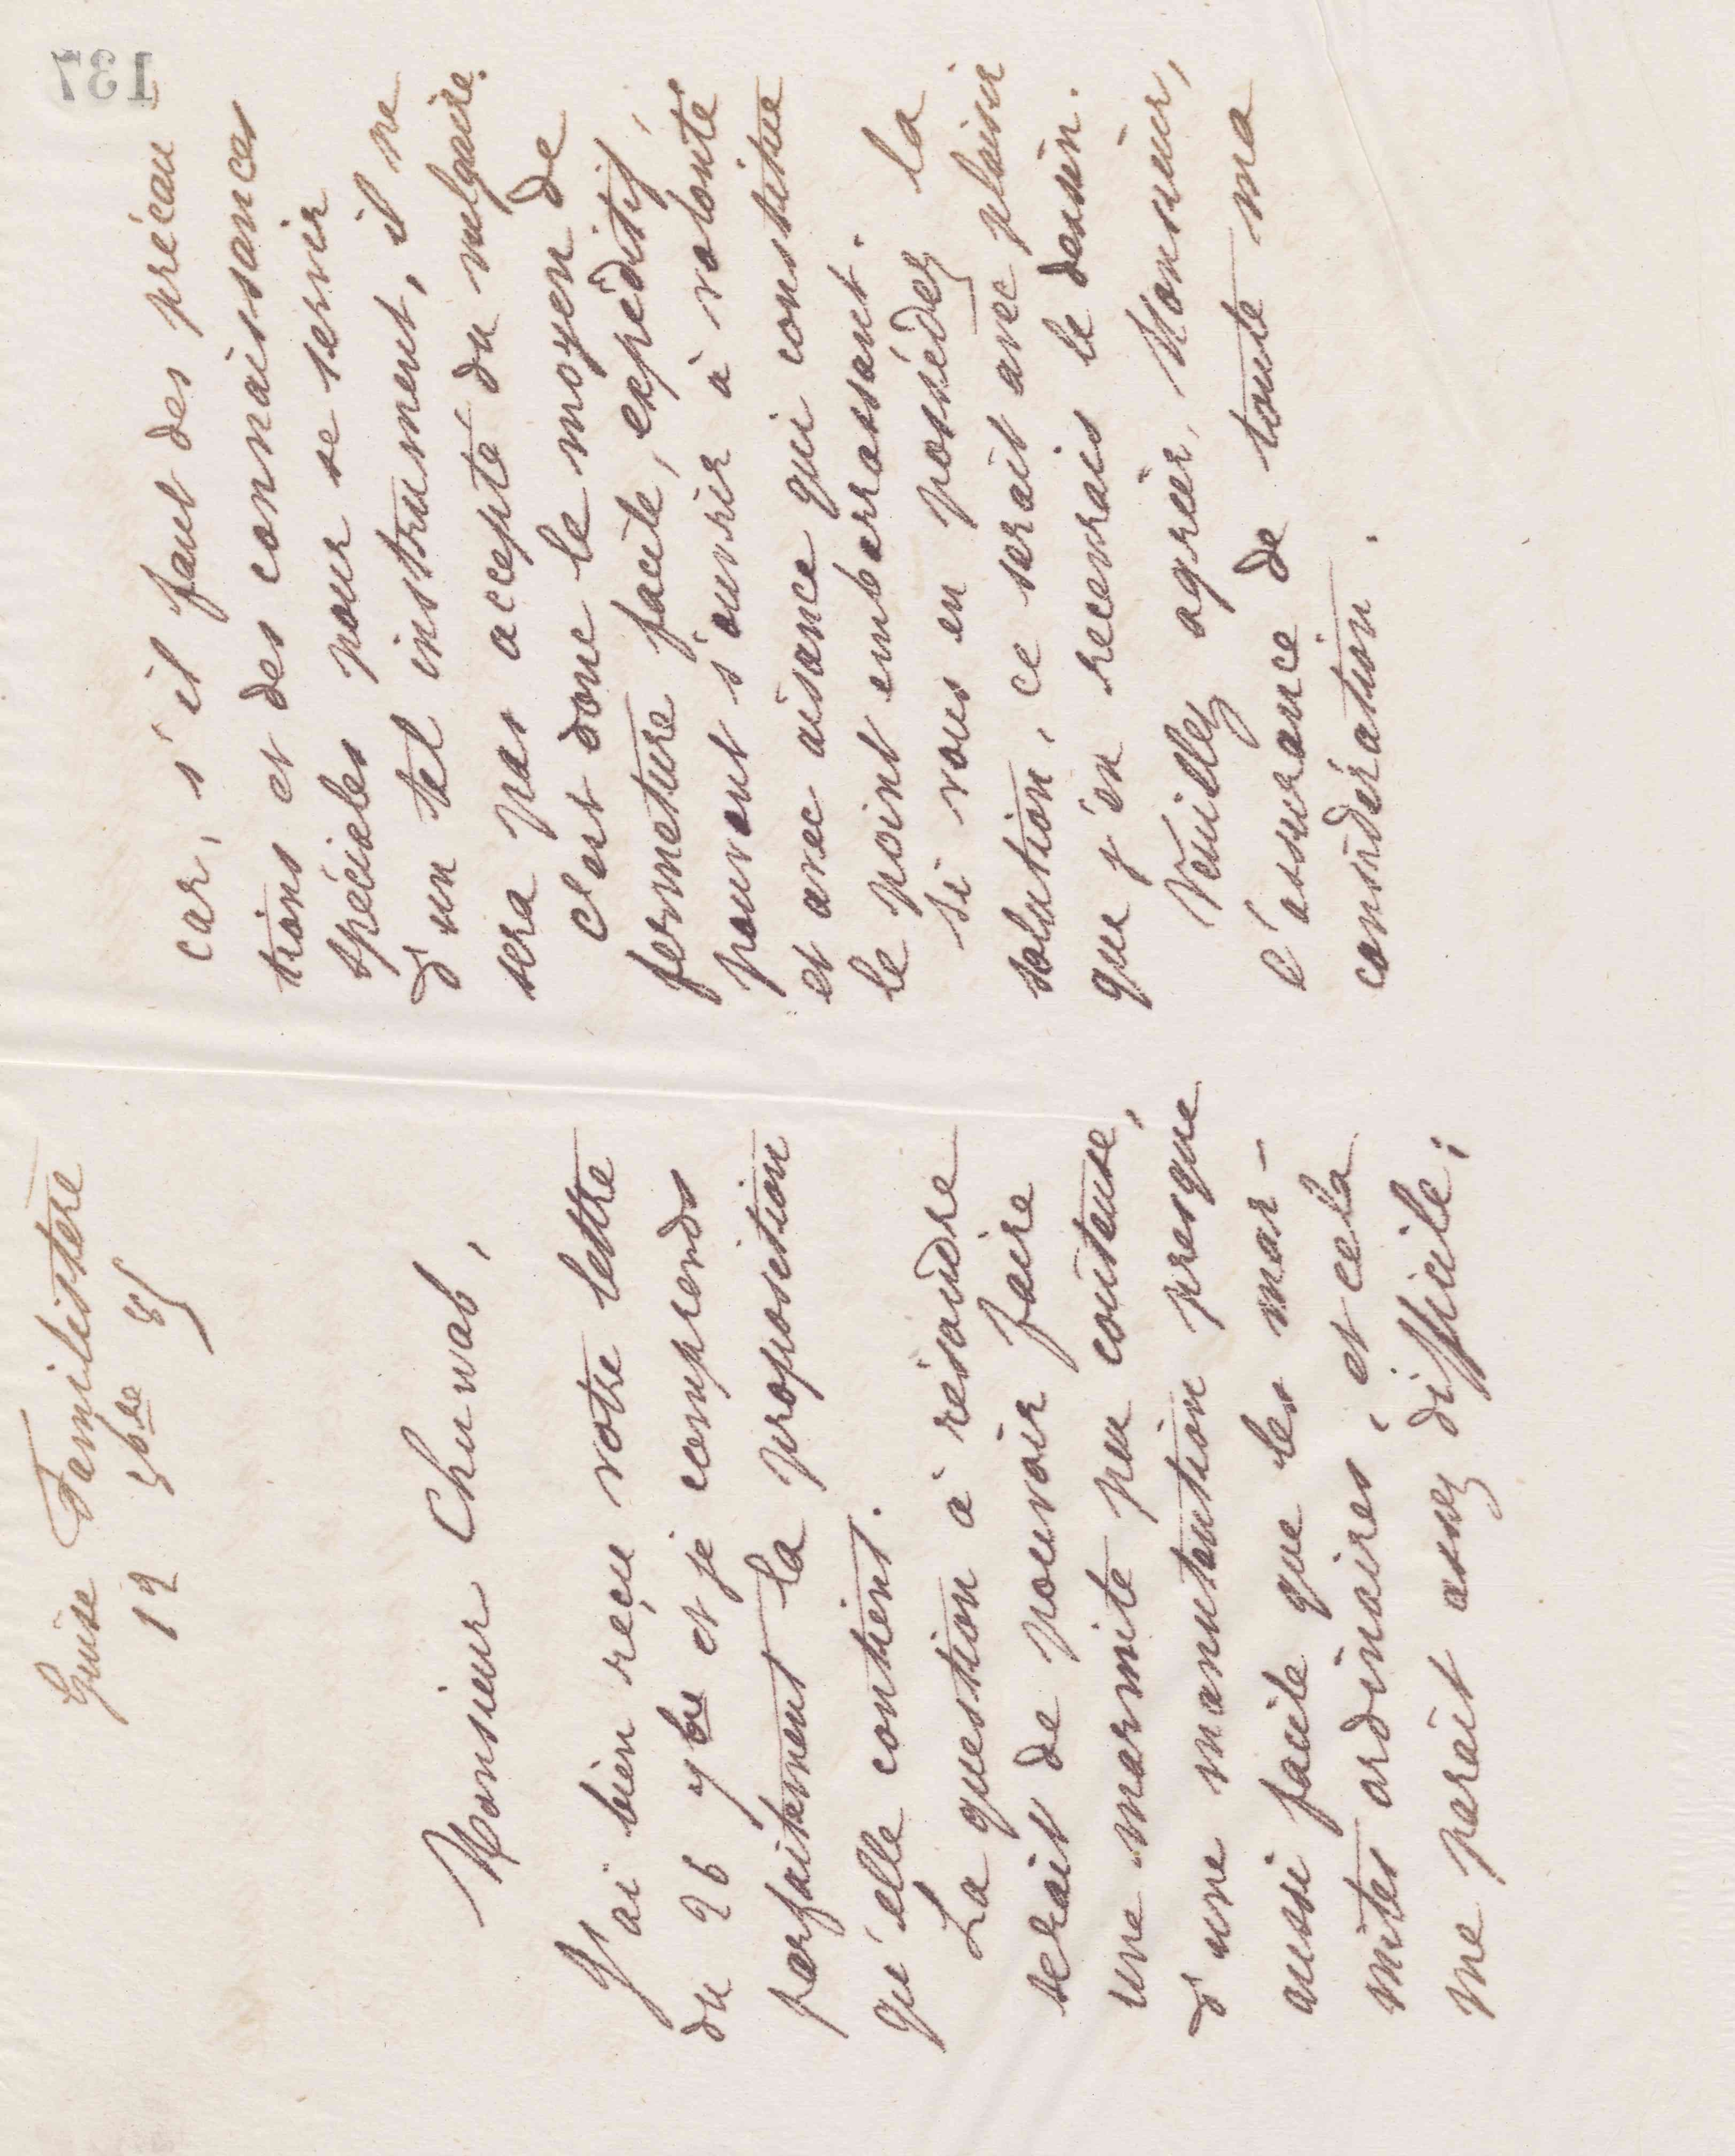 Guise Familistère
12 9bre 85
Monsieur Chuwab,
J'ai bien reçu votre lettre
du 26 7bre et je comprends
parfaitement la proposition
qu'elle contient.
La question à résoudre
serait de pouvoir faire
une marmite peu coûteuse,
d'une manutention presque
aussi facile que les mar-
mites ordinaires, et cela
me paraît assez difficile;
137
car, s'il faut des précau
tions et des connaissances
spéciales pour se servir
d'un tel instrument, il ne
sera pas accepté du vulgaire.
C'est donc le moyen de
fermeture facile, expéditif,
pouvant s'ouvrir à volonté
et avec aisance qui constitue
le point embarrassant.
Si vous en possédez la
solution, ce serait avec plaisir
que j'en recevrais le dessin.
Veuillez agréer, Monsieur,
l'assurance de toute ma
considération.